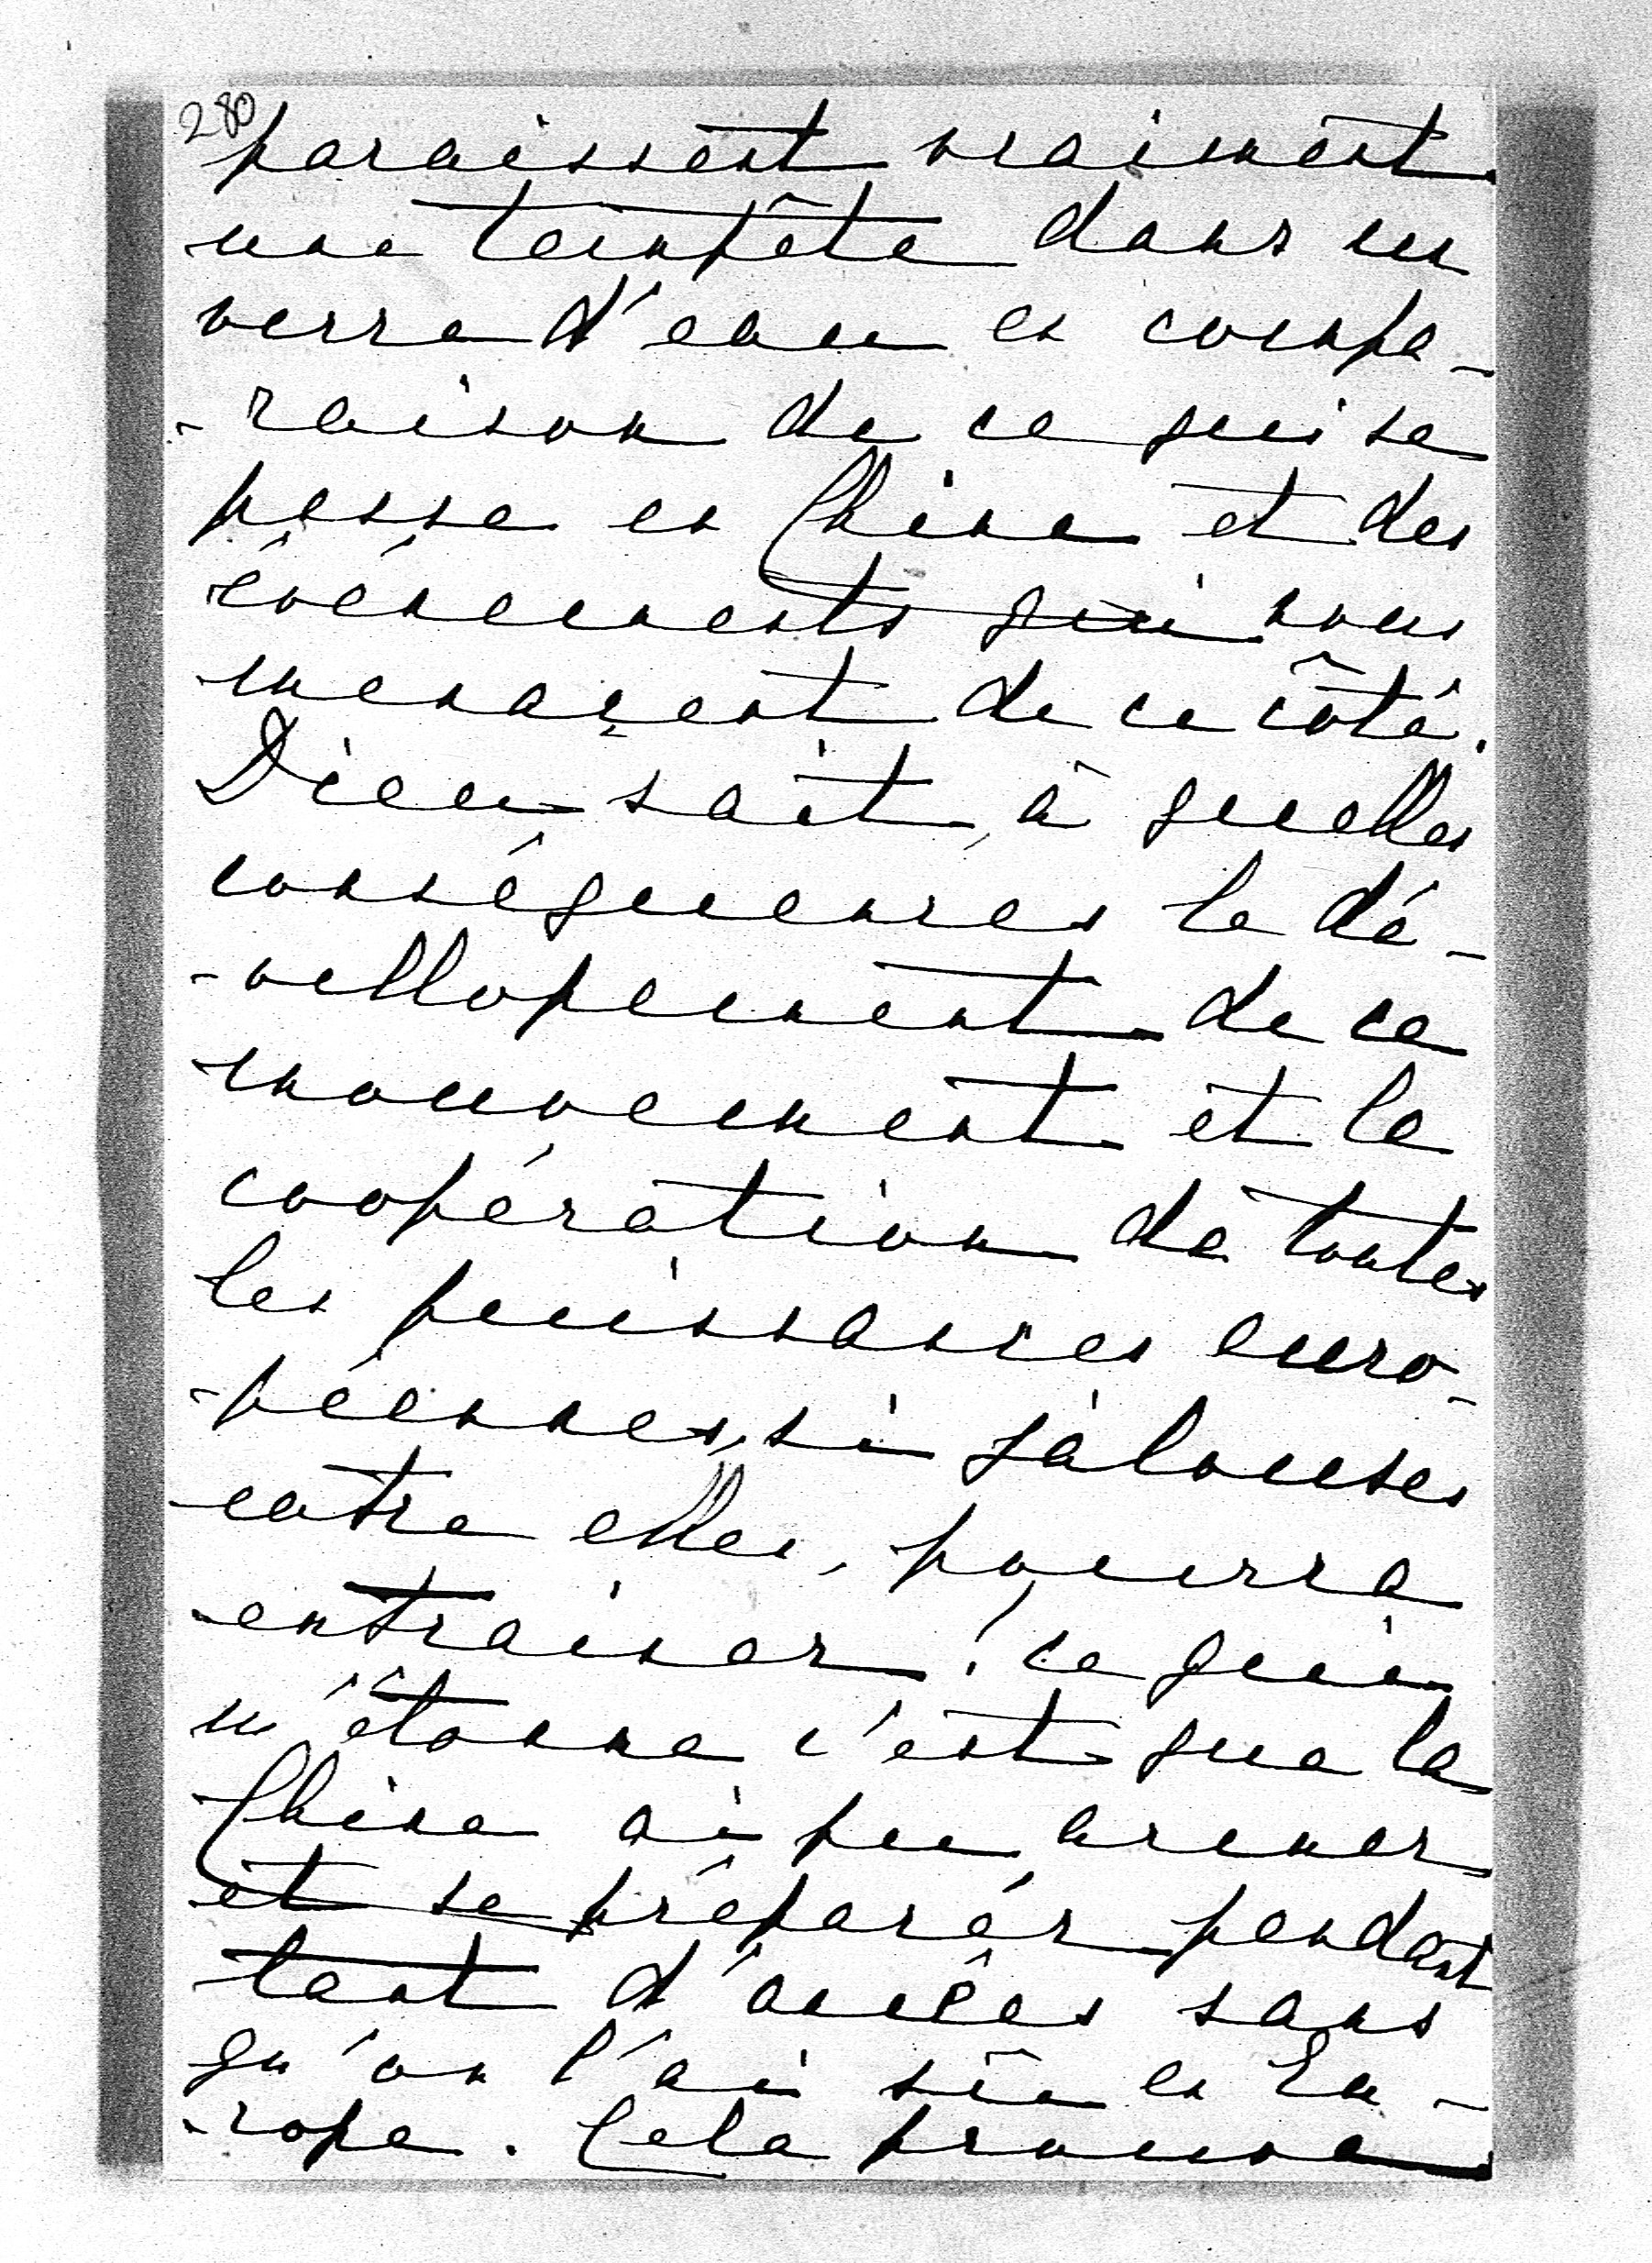 280
paraissent vraiment
une tempête dans un
verre d'eau en compa-
-raison de ce qui se
passe en Chine et des
évènements qui nous
menaçent de ce côté.
Dieu sait, à quelles
conséquences le dé-
-vellopement de ce
mouvement et la
coopération de toutes
les puissances euro-
-péennes, si jalouses
entre elles, pourra
entrainer! ce qui
m'étonne c'est que la
Chine ai pu armer
et se préparer pendant
tant d'années sans
qu'on l'ai sû en Eu-
-rope. Cela prouve